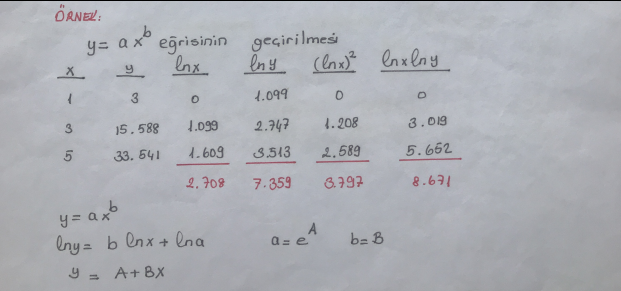 ÖRNEK:
y= a x^b eğrisinin geçirilmesi
x y lnx lny (lnx)² lnx lny
1 3 0 1.099 0 0
3 15.588 1.099 2.747 1.208 3.019
5 33.541 1.609 3.513 2.589 5.652
2.708 7.359 3.797 8.671
y= ax^b
lny= b lnx + lna a= e^A b= B
y = A+BX